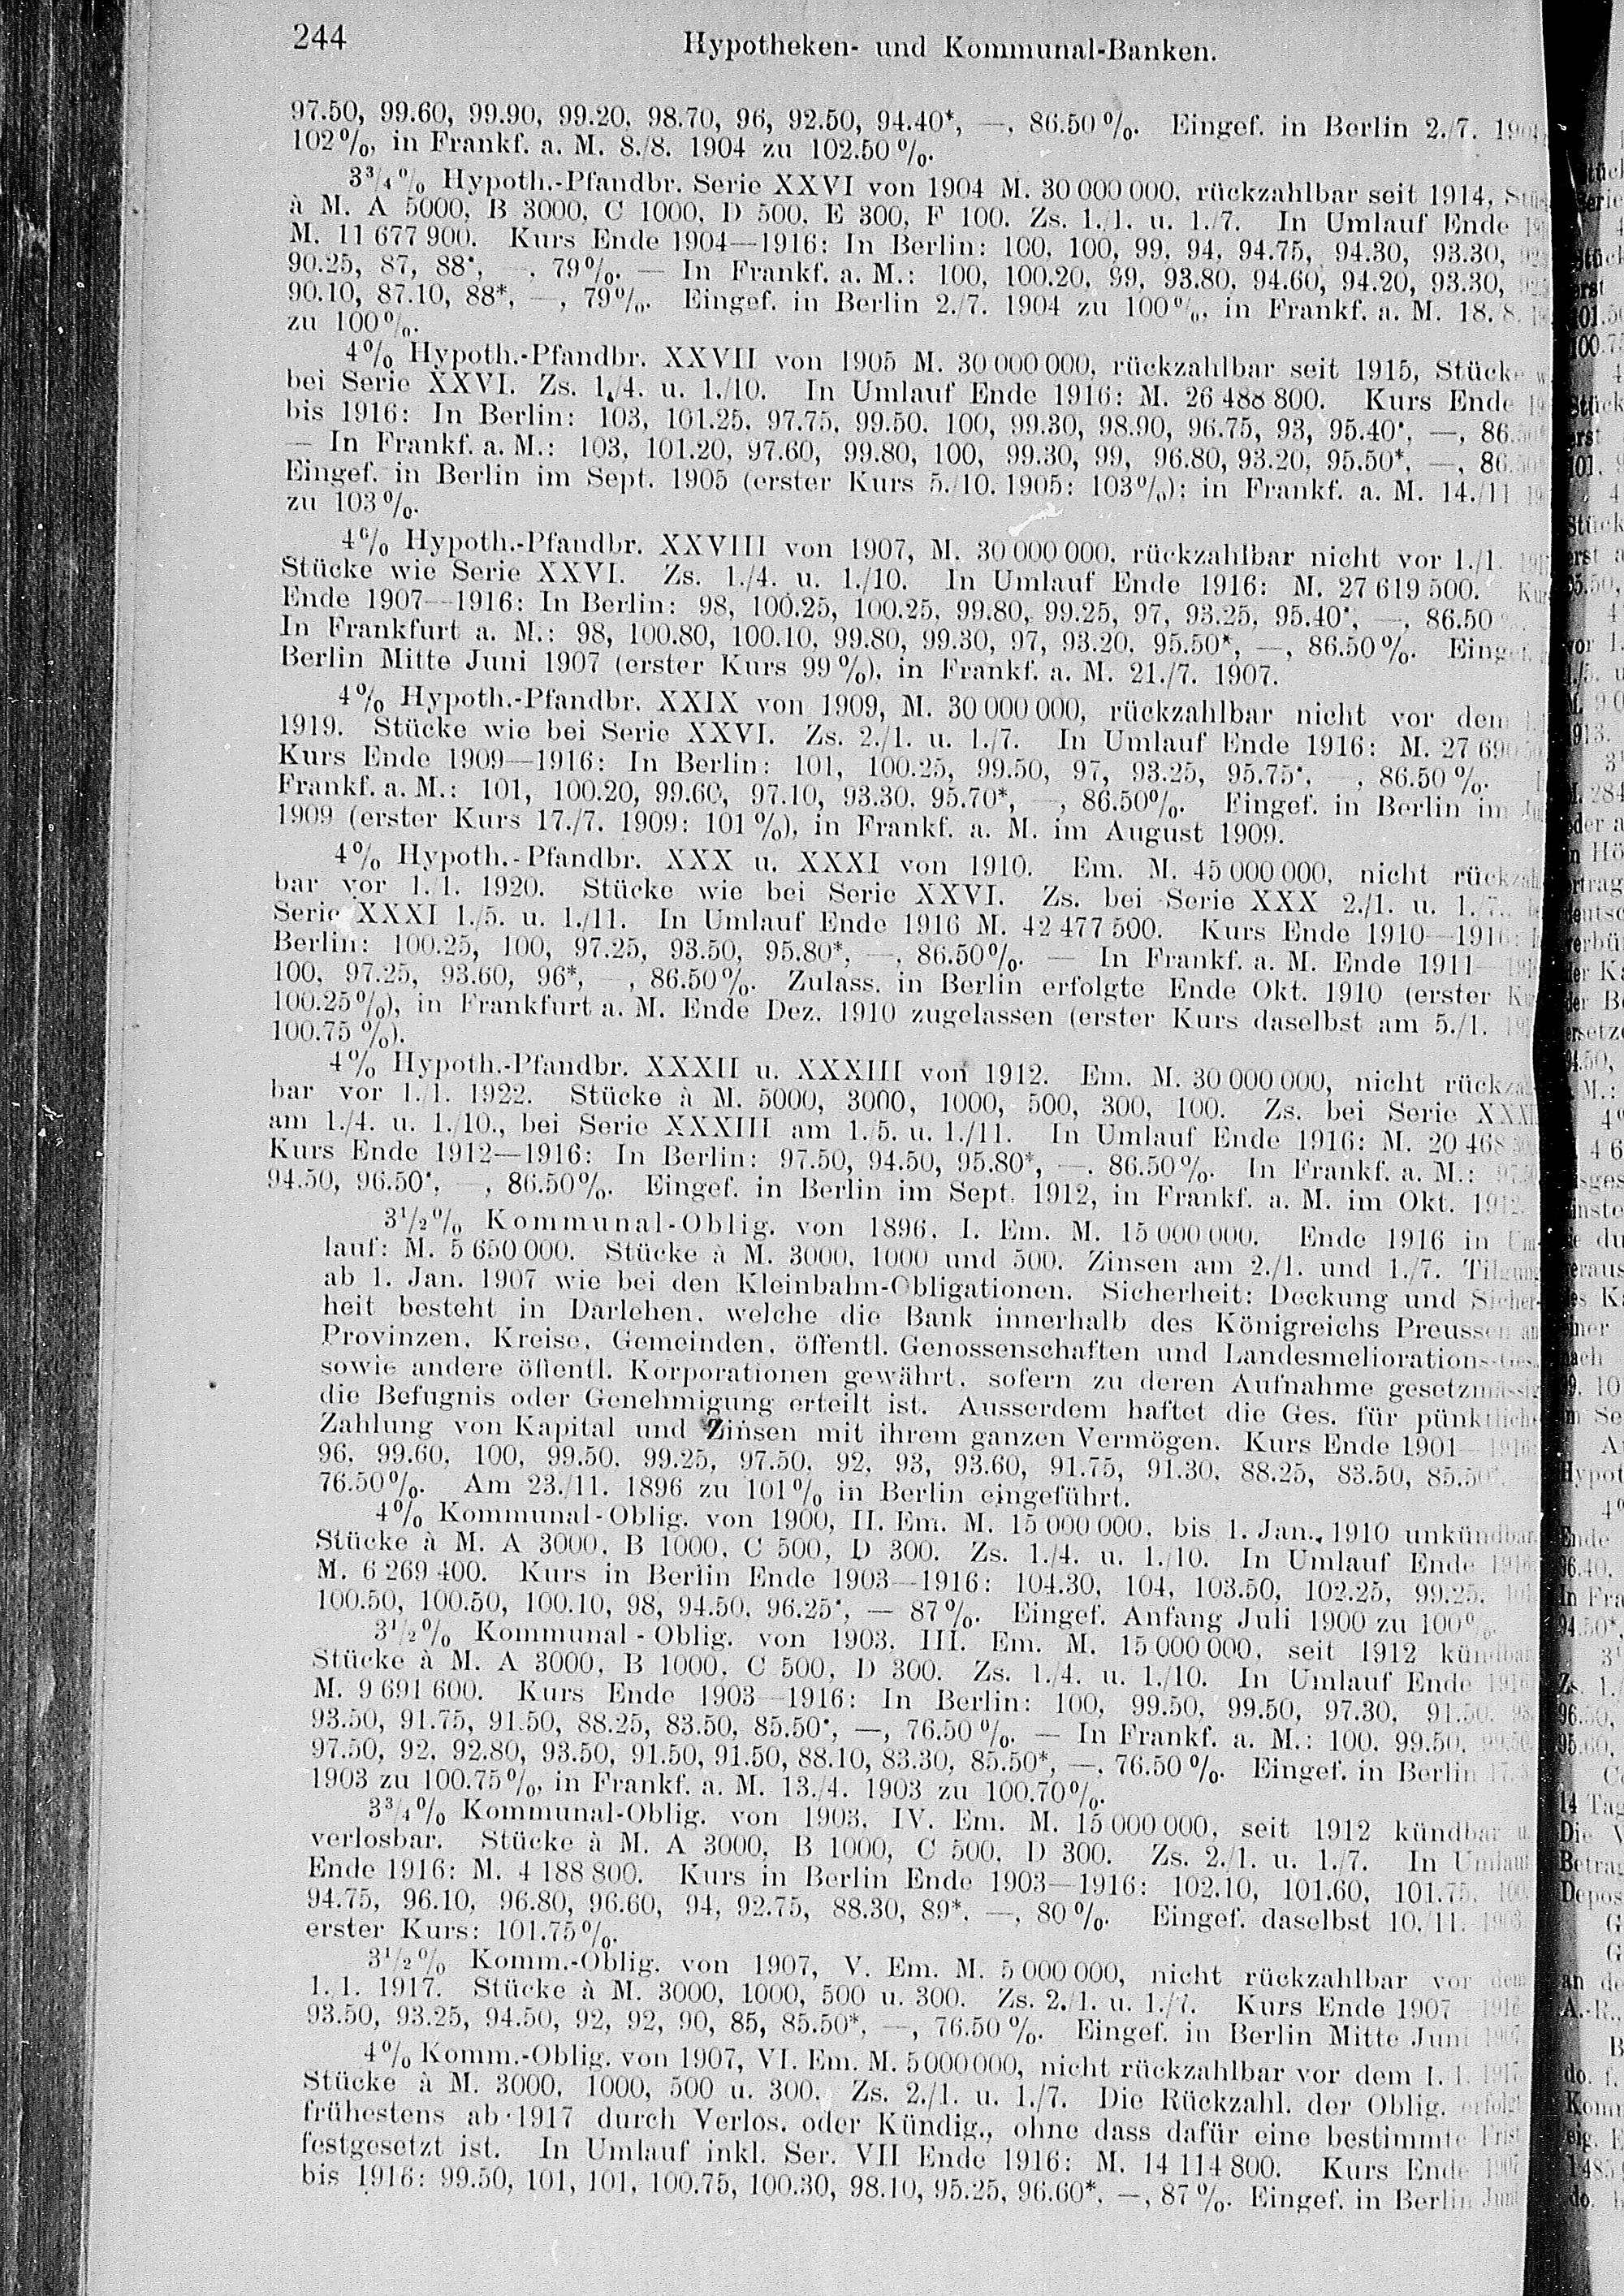 244
Hypotheken- und Kommunal-Banken.
97.50, 99.60, 99.90, 99.20, 98.70, 96, 92.50, 94.40*, —, 86.50%. Eingef. in Berlin 2./7.
102%, in Frankf. a. M. 8./8. 1904 zu 102.50%.
3¾% Hypoth.-Pfandbr. Serie XXVI von 1904 M. 30 000 000, rückzahlbar seit 1914,
à M. A 5000, B 3000, C 1000, D 500, E 300, F 100. Zs. 1./1. u. 1./7. In Umlauf Ende
M. 11 677 900. Kurs Ende 1904—1916: In Berlin: 100, 100, 99, 94, 94.75, 94.30, 93.30,
90.25, 87, 88*, —, 79%. — In Frankf. a. M.: 100, 100.20, 99, 93.80, 94.60, 94.20, 93.30,
90.10, 87.10, 88*, —, 79%. Eingef. in Berlin 2./7. 1904 zu 100%, in Frankf. a. M. 18./8.
zu 100%.
4% Hypoth.-Pfandbr. XXVII von 1905 M. 30 000 000, rückzahlbar seit 1915, Stücke
bei Serie XXVI. Zs. 1./4. u. 1./10. In Umlauf Ende 1916: M. 26 488 800. Kurs Ende
bis 1916: In Berlin: 103, 101.25, 97.75, 99.50, 100, 99.30, 98.90, 96.75, 93, 95.40*, —,
— In Frankf. a. M.: 103, 101.20, 97.60, 99.80, 100, 99.30, 99, 96.80, 93.20, 95.50*, —,
Eingef. in Berlin im Sept. 1905 (erster Kurs 5./10. 1905: 103%); in Frankf. a. M. 14./11.
zu 103%.
4% Hypoth.-Pfandbr. XXVIII von 1907, M. 30 000 000, rückzahlbar nicht vor 1./1.
Stücke wie Serie XXVI. Zs. 1./4. u. 1./10. In Umlauf Ende 1916: M. 27 619 500.
Ende 1907—1916: In Berlin: 98, 100.25, 100.25, 99.80, 99.25, 97, 93.25, 95.40*, —, 86.50
In Frankfurt a. M.: 98, 100.80, 100.10, 99.80, 99.30, 97, 93.20, 95.50*, —, 86.50%.
Berlin Mitte Juni 1907 (erster Kurs 99%), in Frankf. a. M. 21./7. 1907.
4% Hypoth.-Pfandbr. XXIX von 1909, M. 30 000 000, rückzahlbar nicht vor dem
1919. Stücke wie bei Serie XXVI. Zs. 2./1. u. 1./7. In Umlauf Ende 1916: M.
Kurs Ende 1909—1916: In Berlin: 101, 100.25, 99.50, 97, 93.25, 95.75*, —, 86.50%.
Frankf. a. M.: 101, 100.20, 99.60, 97.10, 93.30, 95.70*, —, 86.50%. Eingef. in Berlin im
1909 (erster Kurs 17./7. 1909: 101%), in Frankf. a. M. im August 1909.
4% Hypoth.-Pfandbr. XXX u. XXXI von 1910. Em. M. 45 000 000, nicht rückzahl-
bar vor 1./1. 1920. Stücke wie bei Serie XXVI. Zs. bei Serie XXX 2./1. u. 1./7.,
Serie XXXI 1./5. u. 1./11. In Umlauf Ende 1916 M. 42 477 500. Kurs Ende 1910—1916:
Berlin: 100.25, 100, 97.25, 93.50, 95.80*, —, 86.50%. — In Frankf. a. M. Ende 1911—
100, 97.25, 93.60, 96*, —, 86.50%. Zulass. in Berlin erfolgte Ende Okt. 1910 (erster
100.25%), in Frankfurt a. M. Ende Dez. 1910 zugelassen (erster Kurs daselbst am 5./1.
100.75%).
4% Hypoth.-Pfandbr. XXXII u. XXXIII von 1912. Em. M. 30 000 000, nicht rückzahl-
bar vor 1./1. 1922. Stücke à M. 5000, 3000, 1000, 500, 300, 100. Zs. bei Serie
am 1./4. u. 1./10., bei Serie XXXIII am 1./5. u. 1./11. In Umlauf Ende 1916: M.
Kurs Ende 1912—1916: In Berlin: 97.50, 94.50, 95.80*, —, 86.50%. In Frankf. a. M.:
94.50, 96.50*, —, 86.50%. Eingef. in Berlin im Sept. 1912, in Frankf. a. M. im Okt. 1912.
3½% Kommunal-Oblig. von 1896, I. Em. M. 15 000 000. Ende 1916 in Um-
lauf: M. 5 650 000. Stücke à M. 3000, 1000 und 500. Zinsen am 2./1. und 1./7. Tilgung
ab 1. Jan. 1907 wie bei den Kleinbahn-Obligationen. Sicherheit: Deckung und Sicher-
heit besteht in Darlehen, welche die Bank innerhalb des Königreichs Preussen an
Provinzen, Kreise, Gemeinden, öffentl. Genossenschaften und Landesmeliorations-Ges.,
sowie andere öffentl. Korporationen gewährt, sofern zu deren Aufnahme gesetzmässig
die Befugnis oder Genehmigung erteilt ist. Ausserdem haftet die Ges. für pünktliche
Zahlung von Kapital und Zinsen mit ihrem ganzen Vermögen. Kurs Ende 1901—1916:
96, 99.60, 100, 99.50, 99.25, 97.50, 92, 93, 93.60, 91.75, 91.30, 88.25, 83.50, 85.50*,
76.50%. Am 23./11. 1896 zu 101% in Berlin eingeführt.
4% Kommunal-Oblig. von 1900, II. Em. M. 15 000 000, bis 1. Jan. 1910 unkündbar.
Stücke à M. A 3000, B 1000, C 500, D 300. Zs. 1./4. u. 1./10. In Umlauf Ende 1916
M. 6 269 400. Kurs in Berlin Ende 1903—1916: 104.30, 104, 103.50, 102.25, 99.25,
100.50, 100.50, 100.10, 98, 94.50, 96.25*, — 87%. Eingef. Anfang Juli 1900 zu 100%.
3½% Kommunal-Oblig. von 1903, III. Em. M. 15 000 000, seit 1912 kündbar
Stücke à M. A 3000, B 1000, C 500, D 300. Zs. 1./4. u. 1./10. In Umlauf Ende 1916
M. 9 691 600. Kurs Ende 1903—1916: In Berlin: 100, 99.50, 99.50, 97.30, 91.50,
93.50, 91.75, 91.50, 88.25, 83.50, 85.50*, —, 76.50%. — In Frankf. a. M.: 100, 99.50, 99.50,
97.50, 92, 92.80, 93.50, 91.50, 91.50, 88.10, 83.30, 85.50*, —, 76.50%. Eingef. in Berlin
1903 zu 100.75%, in Frankf. a. M. 13./4. 1903 zu 100.70%.
3¾% Kommunal-Oblig. von 1903, IV. Em. M. 15 000 000, seit 1912 kündbar u.
verlosbar. Stücke à M. A 3000, B 1000, C 500, D 300. Zs. 2./1. u. 1./7. In Umlauf
Ende 1916: M. 4 188 800. Kurs in Berlin Ende 1903—1916: 102.10, 101.60, 101.75,
94.75, 96.10, 96.80, 96.60, 94, 92.75, 88.30, 89*, —, 80%. Eingef. daselbst 10./11. 1903
erster Kurs: 101.75%.
3½% Komm.-Oblig. von 1907, V. Em. M. 5 000 000, nicht rückzahlbar vor dem
1./1. 1917. Stücke à M. 3000, 1000, 500 u. 300. Zs. 2./1. u. 1./7. Kurs Ende 1907—1916
93.50, 93.25, 94.50, 92, 92, 90, 85, 85.50*, —, 76.50%. Eingef. in Berlin Mitte Juni 1907
4% Komm.-Oblig. von 1907, VI. Em. M. 5 000 000, nicht rückzahlbar vor dem 1./1. 1917
Stücke à M. 3000, 1000, 500 u. 300. Zs. 2./1. u. 1./7. Die Rückzahl. der Oblig. erfolgt
frühestens ab 1917 durch Verlos. oder Kündig., ohne dass dafür eine bestimmte Frist
festgesetzt ist. In Umlauf inkl. Ser. VII Ende 1916: M. 14 114 800. Kurs Ende 1907
bis 1916: 99.50, 101, 101, 100.75, 100.30, 98.10, 95.25, 96.60*, —, 87%. Eingef. in Berlin Juni